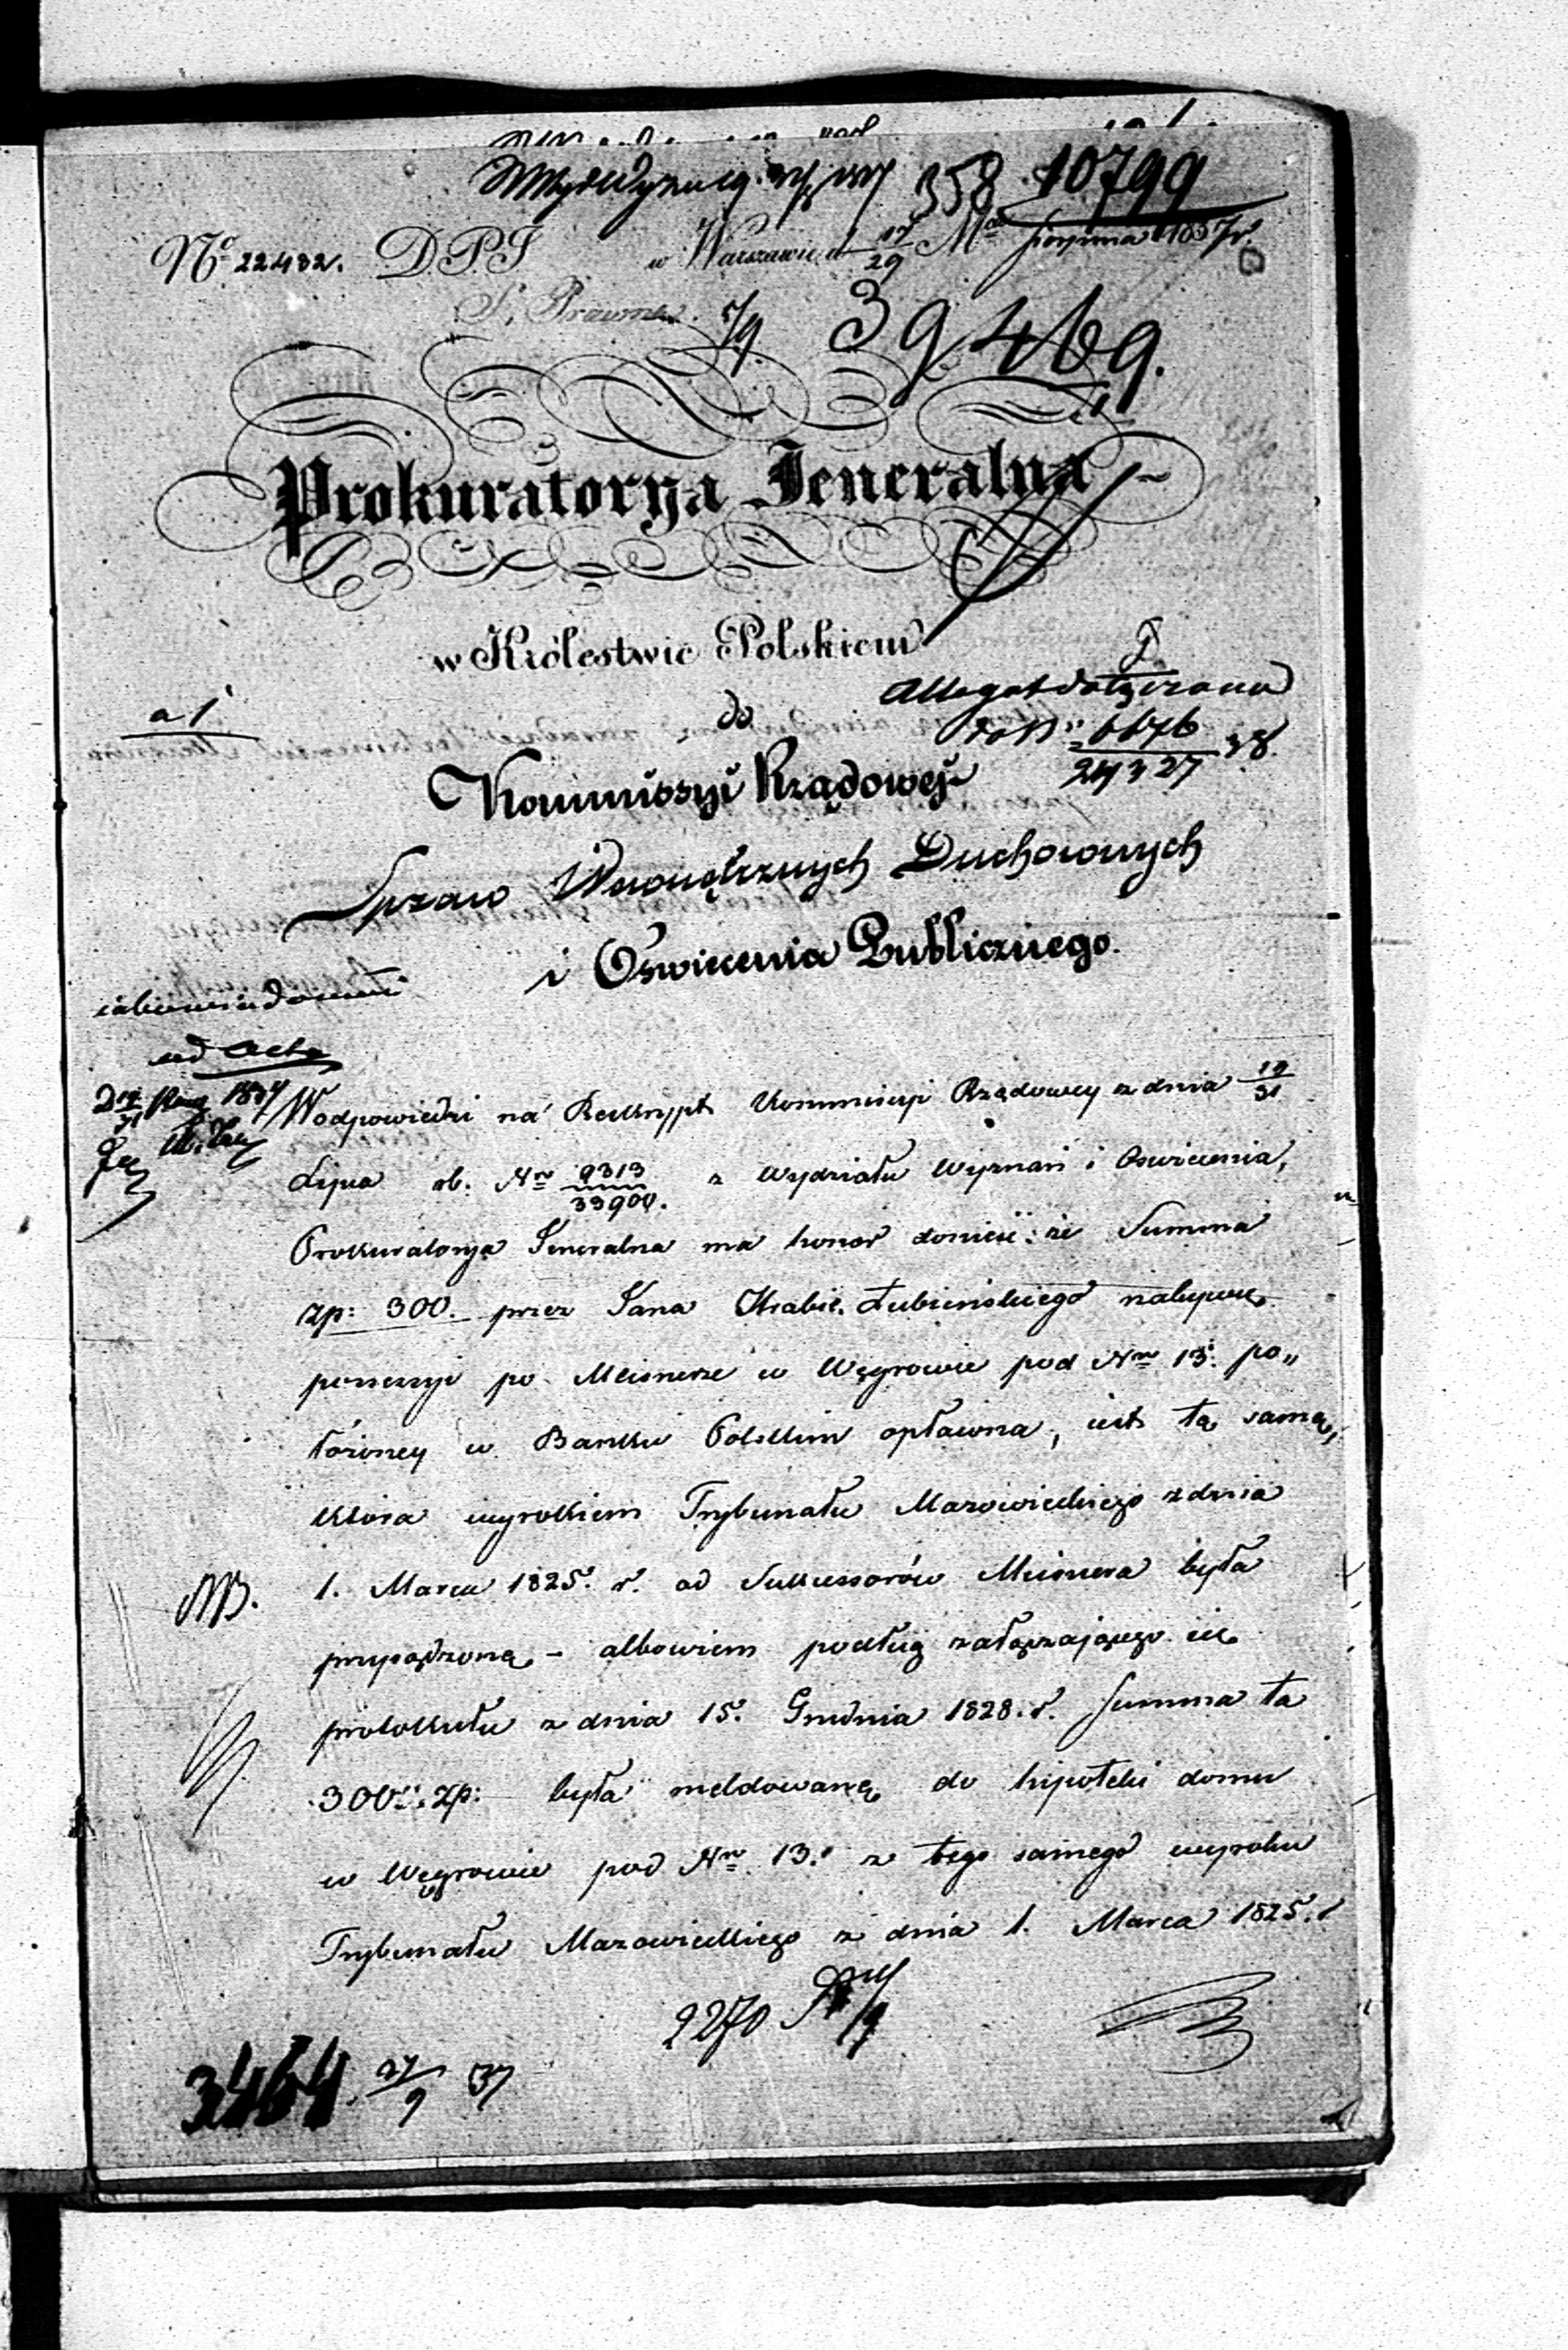 358 10799
Nº 22432. D.P.S w Warszawie d 17/29 Mca Sierpnia 1837 r.
S. Prawna 5/9 39469.
Prokuratorya Jeneralna
w Królestwie Polskiem
a 1
do
Allegat dołączono
do Nru 6676/24327 38.
Kommissyi Rządowej
Spraw Wewnętrznych Duchownych
i Oświecenia Publicznego.
ad Acta
1837
W odpowiedzi na Reskrypt Kommissyi Rządowey z dnia 19/31
Lipca rb: Nr 9313/33900. z Wydziału Wyznań i Oświecenia,
Prokuratorya Jeneralna ma honor donieść: że Summa
zp: 300. przez Jana Hrabię Łubieńskiego nabywcę
possessyi po Meisnerze w Węgrowie pod Nrm 13. po„
łożoney w Banku Polskim opłacona, iest tą samą,
która wyrokiem Trybunału Mazowieckiego z dnia
NB. 1. Marca 1825. r. od Sukcessorów Meisnera była
przysądzoną - albowiem podług załączającego się
protokułu z dnia 15. Grudnia 1828. r. Summa ta
300. zp: była meldowaną do hipoteki domu
w Węgrowie pod Nrm 13. z tego samego wyroku
Trybunału Mazowieckiego z dnia 1. Marca 1825. r
2270
3464 27/9 37